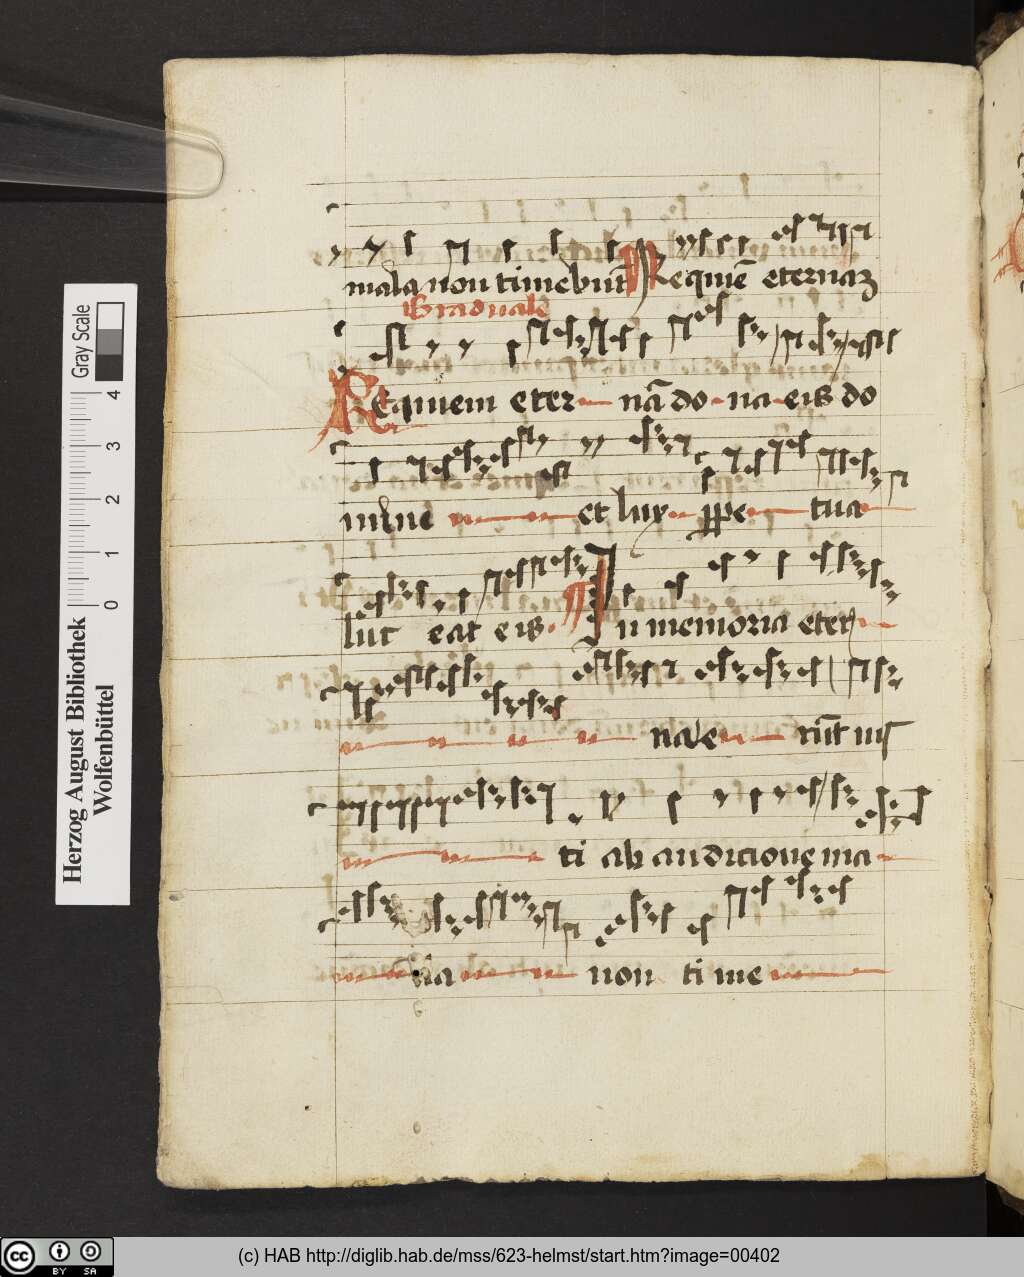 mala non timebūt Requiē eternaʒ
Graduale
Requiem eter nā do na eis do
mine et lux ꝑpe tua
luc eat eis In memoria eter
na e rūt ius
ti ab audicione ma
la non ti me
Gray Scale
0 1 2 3 4
Herzog August Bibliothek
Wolfenbüttel
cc BY SA
(c) HAB http://diglib.hab.de/mss/623-helmst/start.htm?image=00402